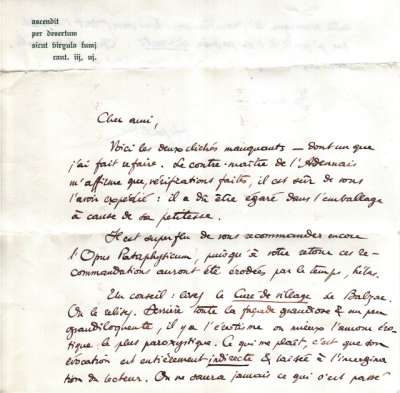 ascendit
per desertum
sicut virgula fumj
cant. iij, vj.
Cher ami,
Voici les deux clichés manquants — dont un que
j'ai fait refaire. Le contre-maître de l'Ardennais
m'affirme que, vérifications faites, il est sûr de vous
l'avoir expédié : il a dû être égaré dans l'emballage
à cause de sa petitesse.
Il est superflu de vous recommander encore
l'Opus Pataphysicum, puisqu'à votre retour ces re-
commandations auront été érodées par le temps, hélas.
Un conseil : lisez le Curé de village de Balzac.
On le relisez. Derrière toute la façade grandiose & un peu
grandiloquente, il y a l'érotisme ou mieux l'amour éro-
tique le plus paroxystique. Ce qui me plaît, c'est que son
évocation est entièrement indirecte & laissée à l'imagina
tion du lecteur. On ne saura jamais ce qui s'est passé